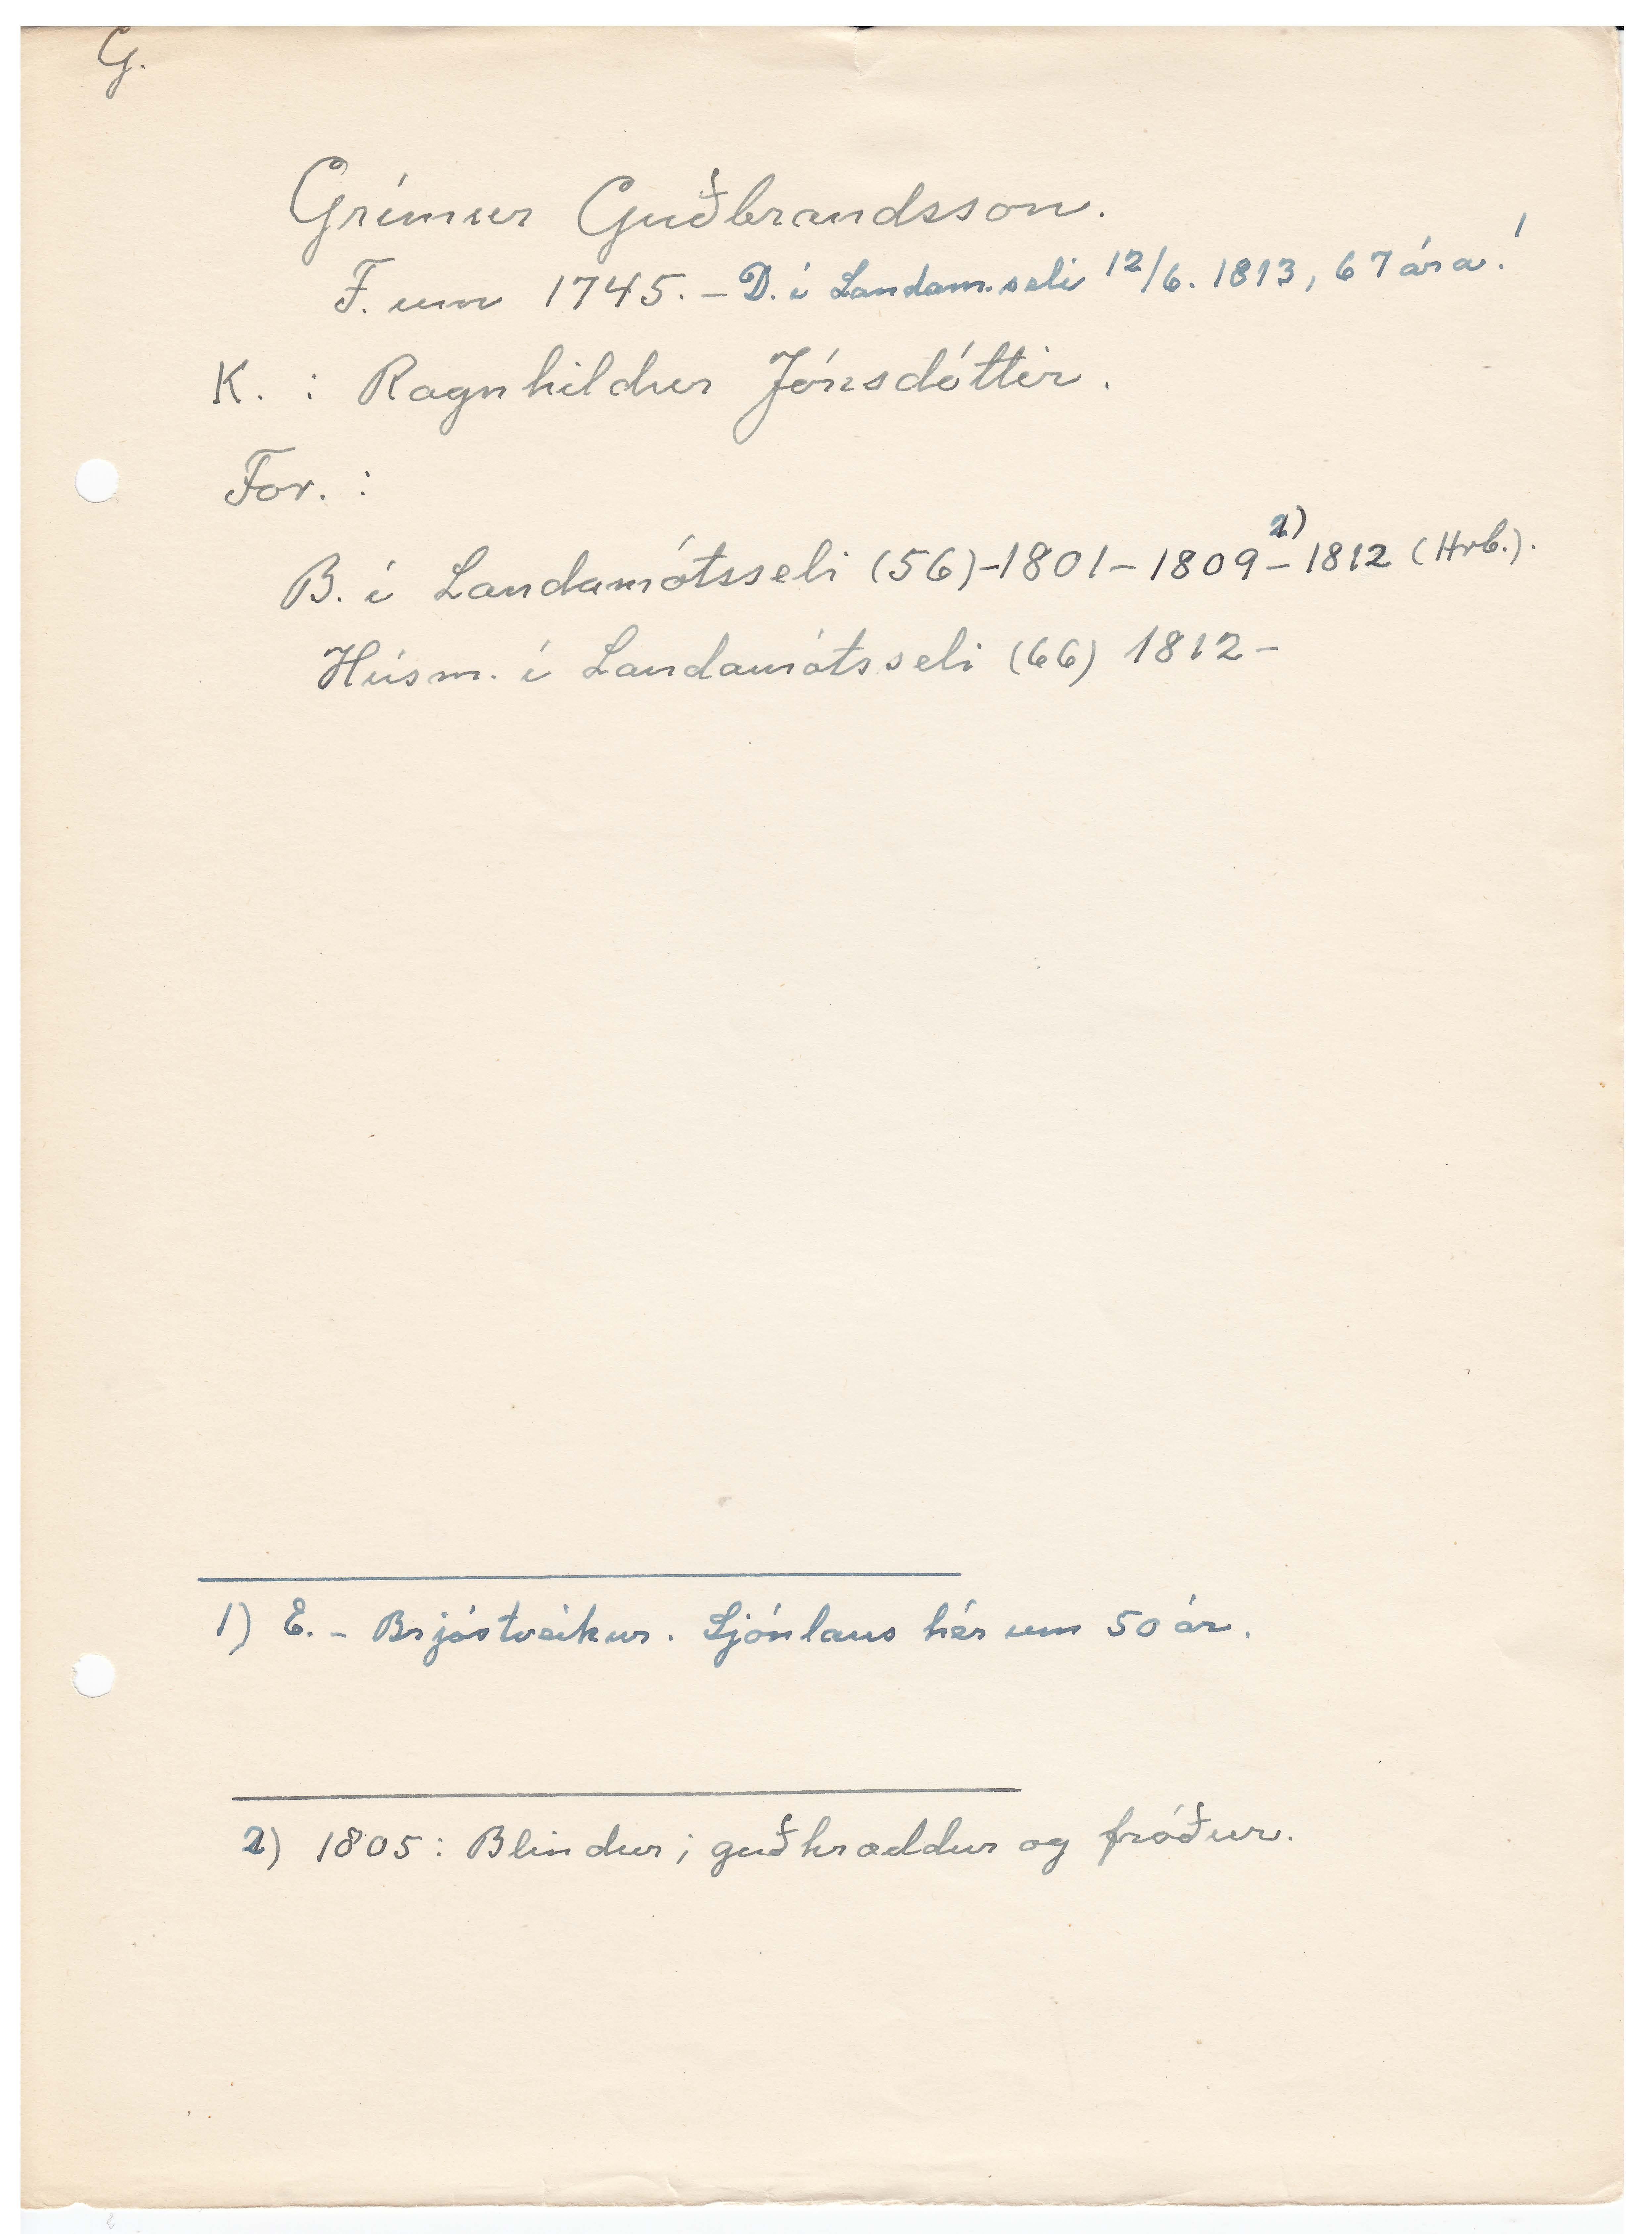 G.
Grímur Guðbrandsson.
F. um 1745. – D. í Landam.seli 12/6. 1813, 67 ára. 1
K. : Ragnhildur Jónsdóttir.
For. :
B. í Landamótsseli (56) -1801 – 1809 – 2) 1812 (Hrb.).
Húsm. í Landamótsseli (66) 1812 –
1) E. – Brjóstveikur. Sjónlaus hér um 50 ár.
2) 1805 : Blindur; guðhræddur og fróður.